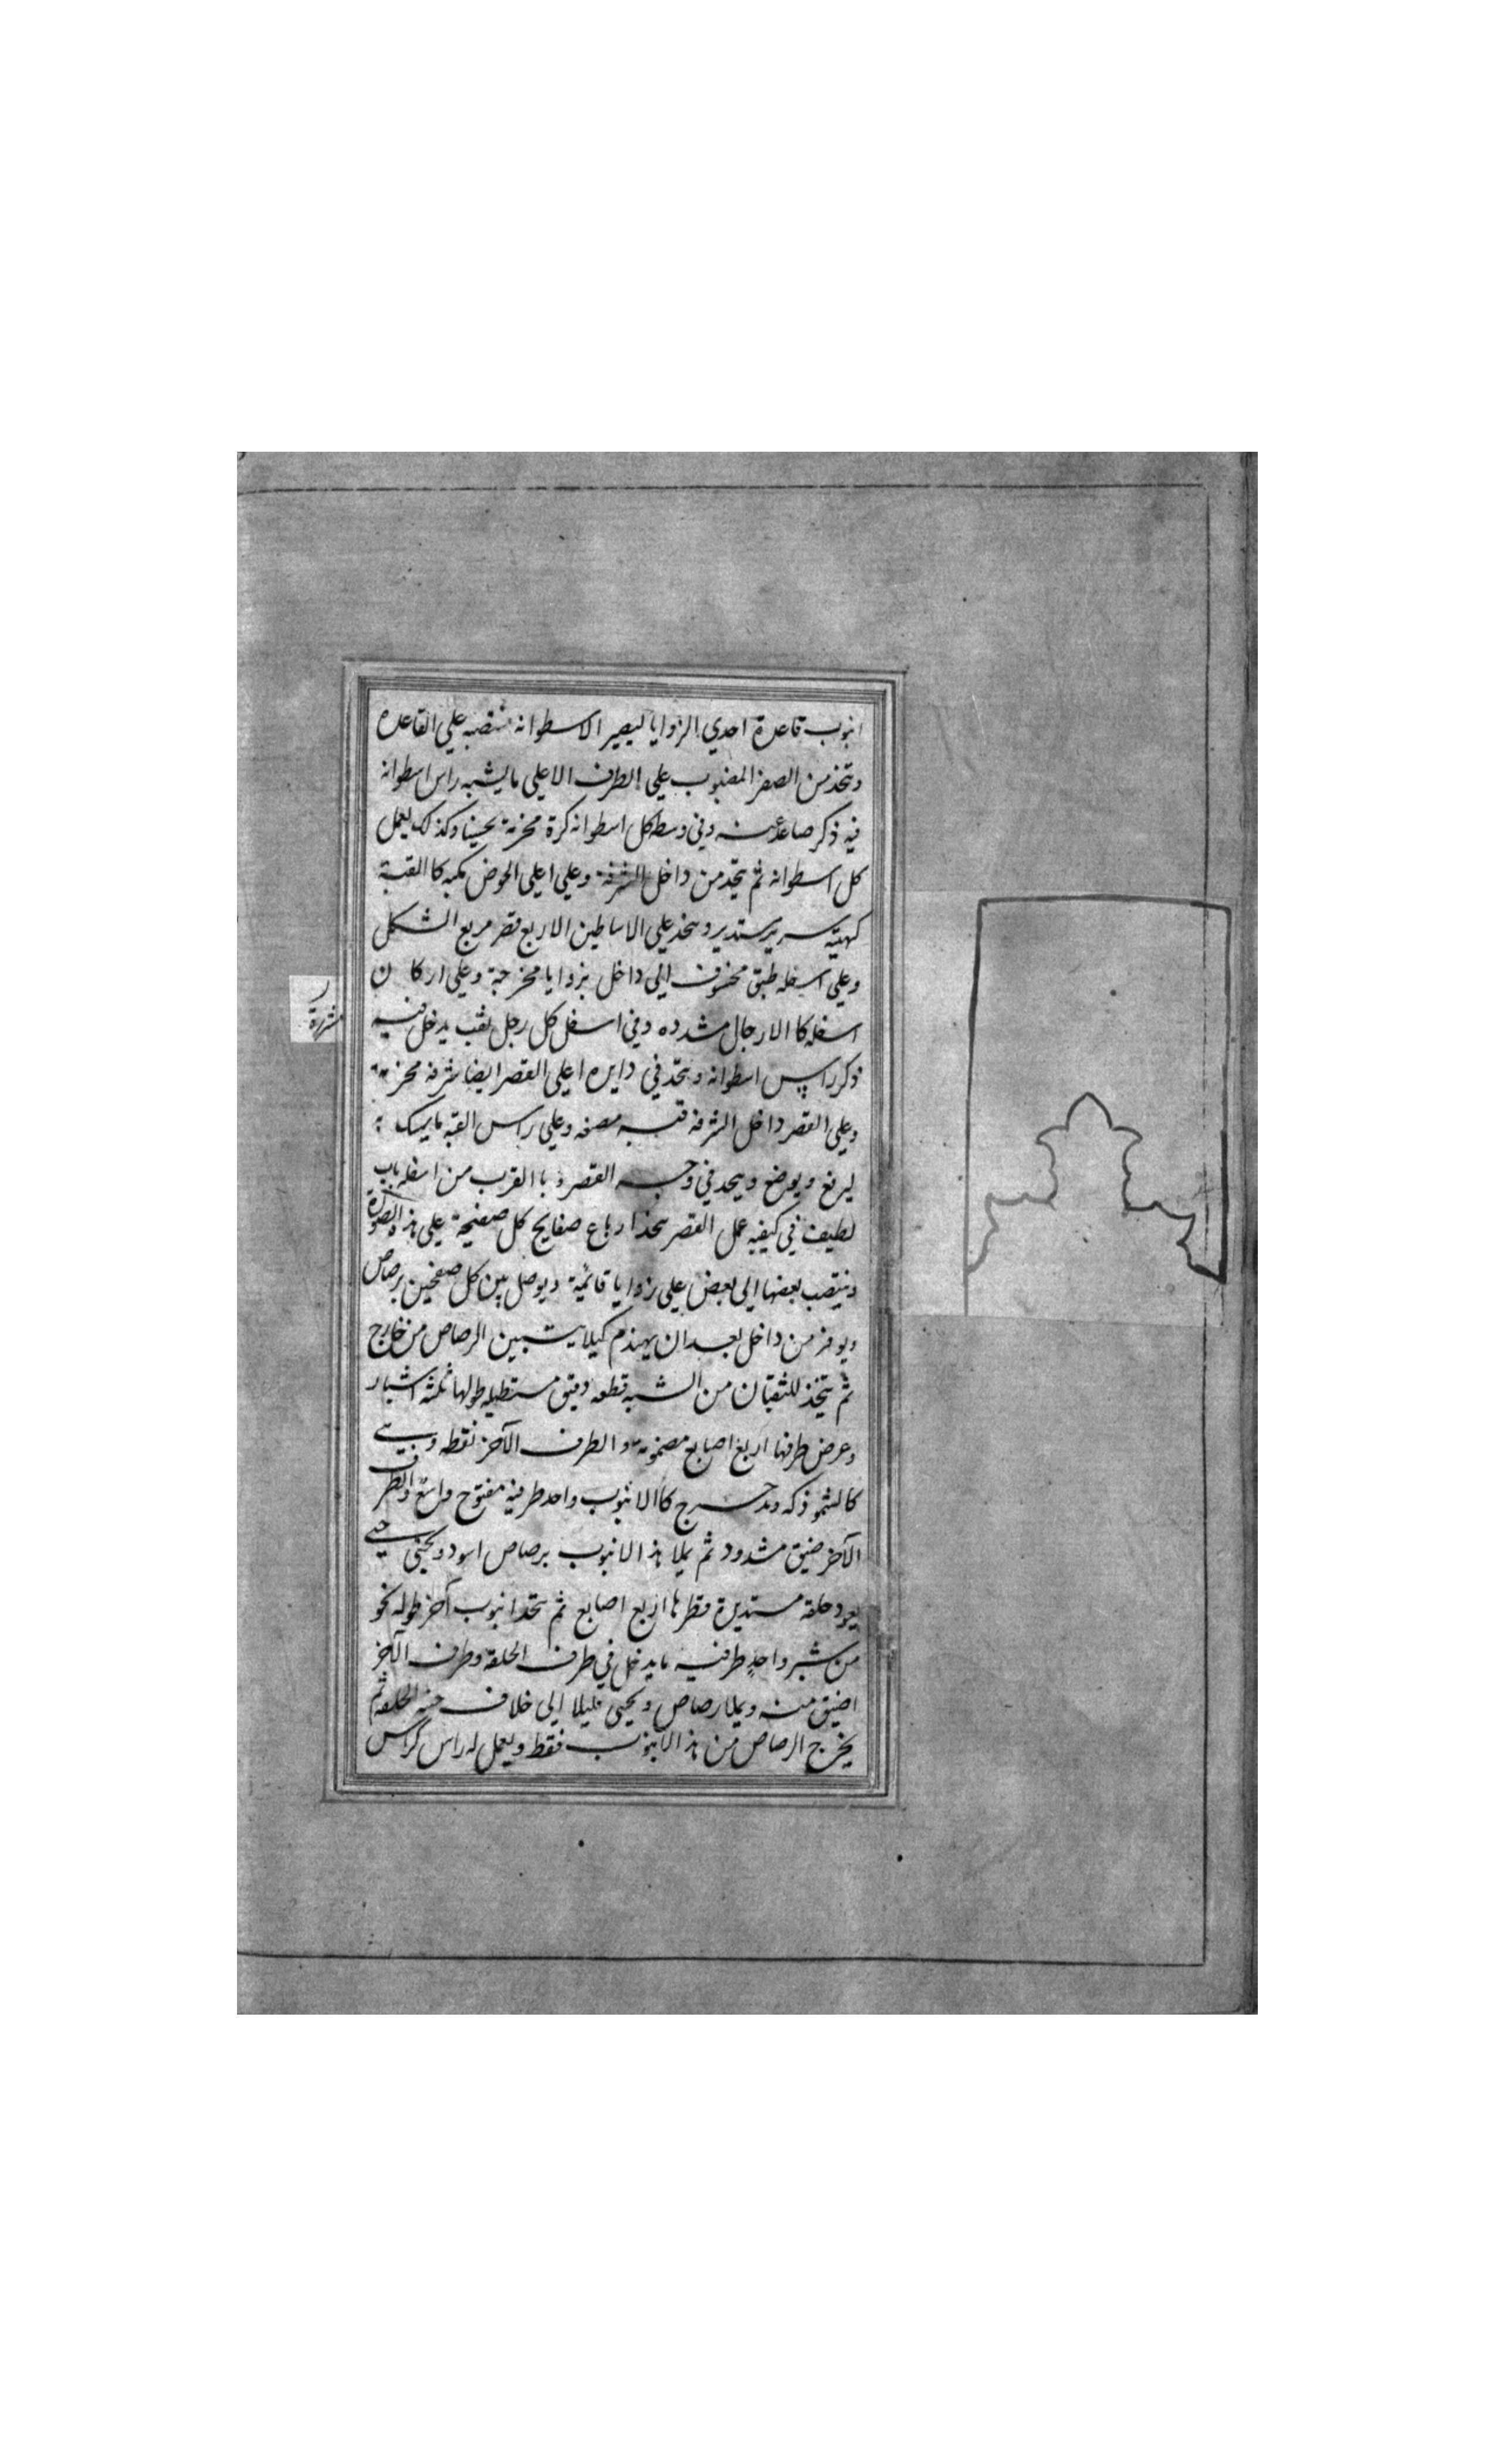 انبوب قاعدة احدي الزوايا ليصير الاسطوانه منتصبه علي القاعده
ويتخذ من الصفر المضبوب علي الطرف الاعلي ما يشبه راس اسطوانه
فيه ذكر صاعد منه وفي وسط كل اسطوانه كرة مخرمة تحسينا وكذلك يعمل
كل اسطوانه ثم يتخذ من داخل الشرفة وعلي اعلي الحوض مكبه كا القبة
كهيئة سرير مستدير ويتخذ علي الاساطين الاربع قصر مربع الشكل
وعلي اسفله طبق مخسوف الي داخل بزوايا مخرجة وعلي اركان
اسفله كا الارجال مشدده وفي اسفل كل رجل ثقب يدخل فيه
ذكر راس اسطوانه ويتخذ في دايره اعلي القصر ايضا شرفه مخرمة
وعلي القصر داخل الشرفه قبه مصفحه وعلي راس القبه ما يمسك
ليرفع ويوضع ويتخذ في وجه القصر و با القرب من اسفله باب
لطيف في كيفيه عمل القصر يتخذ ارباع صفايح كل صفيحة علي هذه الصورة
وينتصب بعضها الي بعض علي زوايا قائمة ويوصل بين كل صفحين برصاص
ويوفر من داخل بعد ان يهندم كيلا يتبين الرصاص من خارج
ثم يتخذ للثعبان من الشبه قطعه دقيق مستطيله طولها ثلثه اشبار
وعرض طرفها اربع اصابع مضمومة و الطرف الآخر نقطه وهي
كالشموذكه ويدحرج كا الانبوب واحد طرفيه مفتوح واسع والطرف
الآخر ضيق مشدود ثم يملا هذا الانبوب برصاص اسود ويحنى حتى
يعود حلقه مستديرة قطرها اربع اصابع ثم يتخذ انبوب آخر طوله نحو
من شبر واحد طرفيه ما يدخل في طرف الحلقة وطرف الآخر
اضيق منه ويملا رصاص ويحنى قليلا الى خلاف حنيه الحلقه ثم
يخرج الرصاص من هذا الانبوب فقط ويعمل له راس كراس